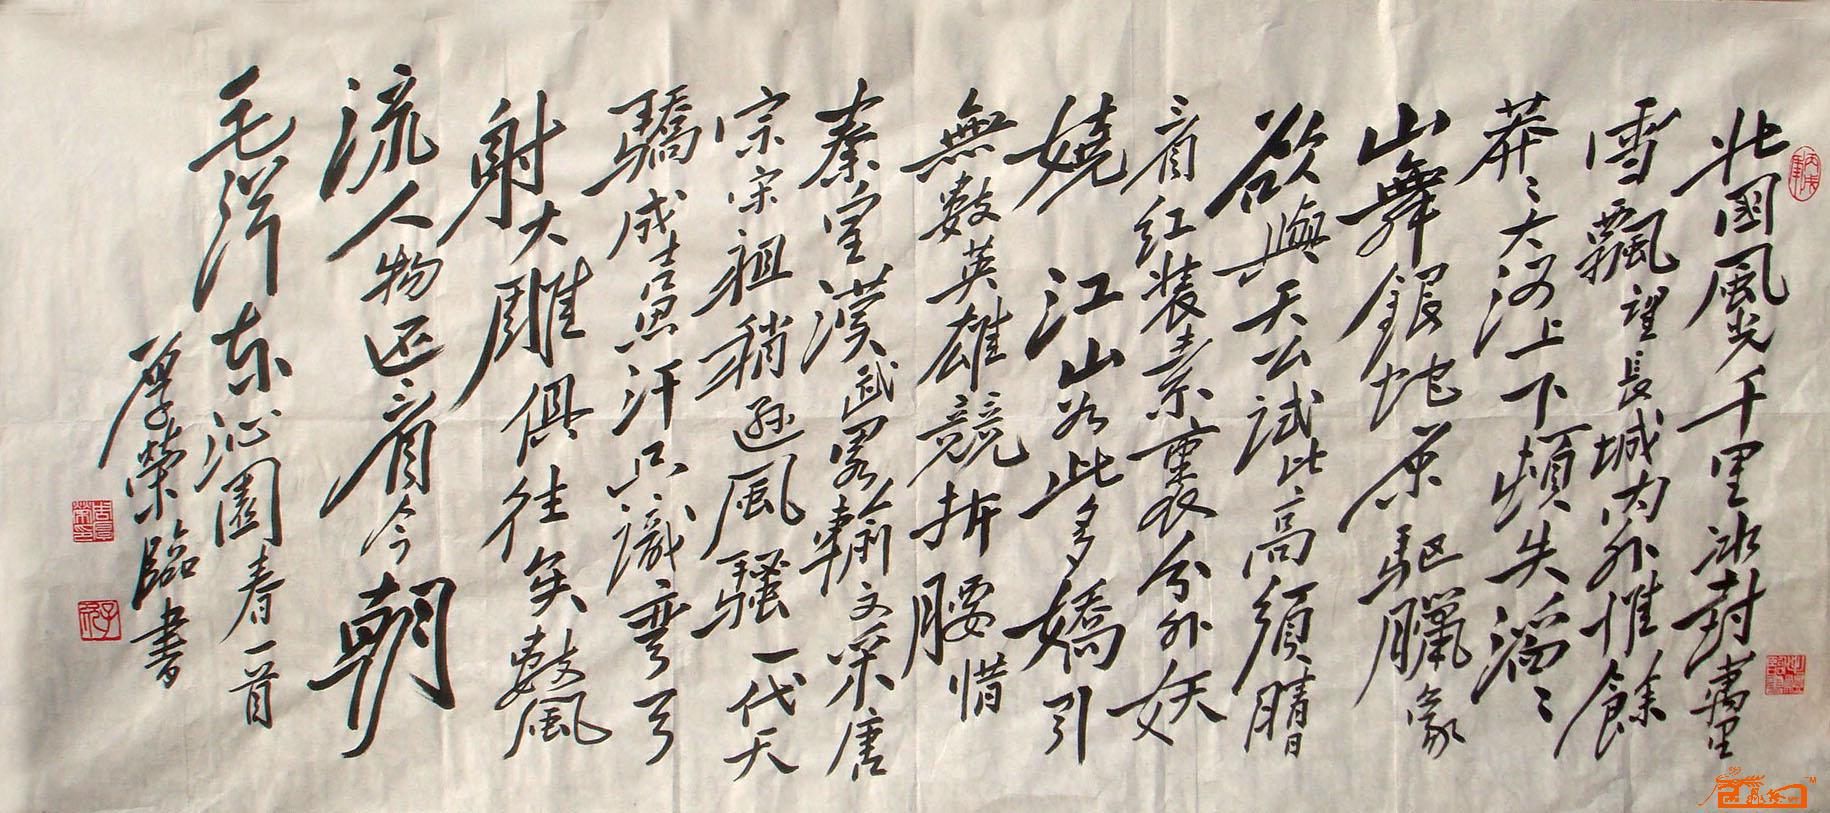 北國風光千里冰封萬里
雪飄望長城内外惟餘
莽〻大河上下頓失滔〻
山舞銀蛇原驅臘象
欲與天公試比高須晴
看紅裝素裹分外妖
嬈 江山如此多嬌引
無數英雄競折腰惜
秦皇漢武畧輸文采唐
宗宋祖稍遜風騷一代天
驕成吉思汗只識彎弓
射大雕俱往矣數風
流人物还看今朝
毛澤东沁園春一首
厚榮臨書
丙戌年